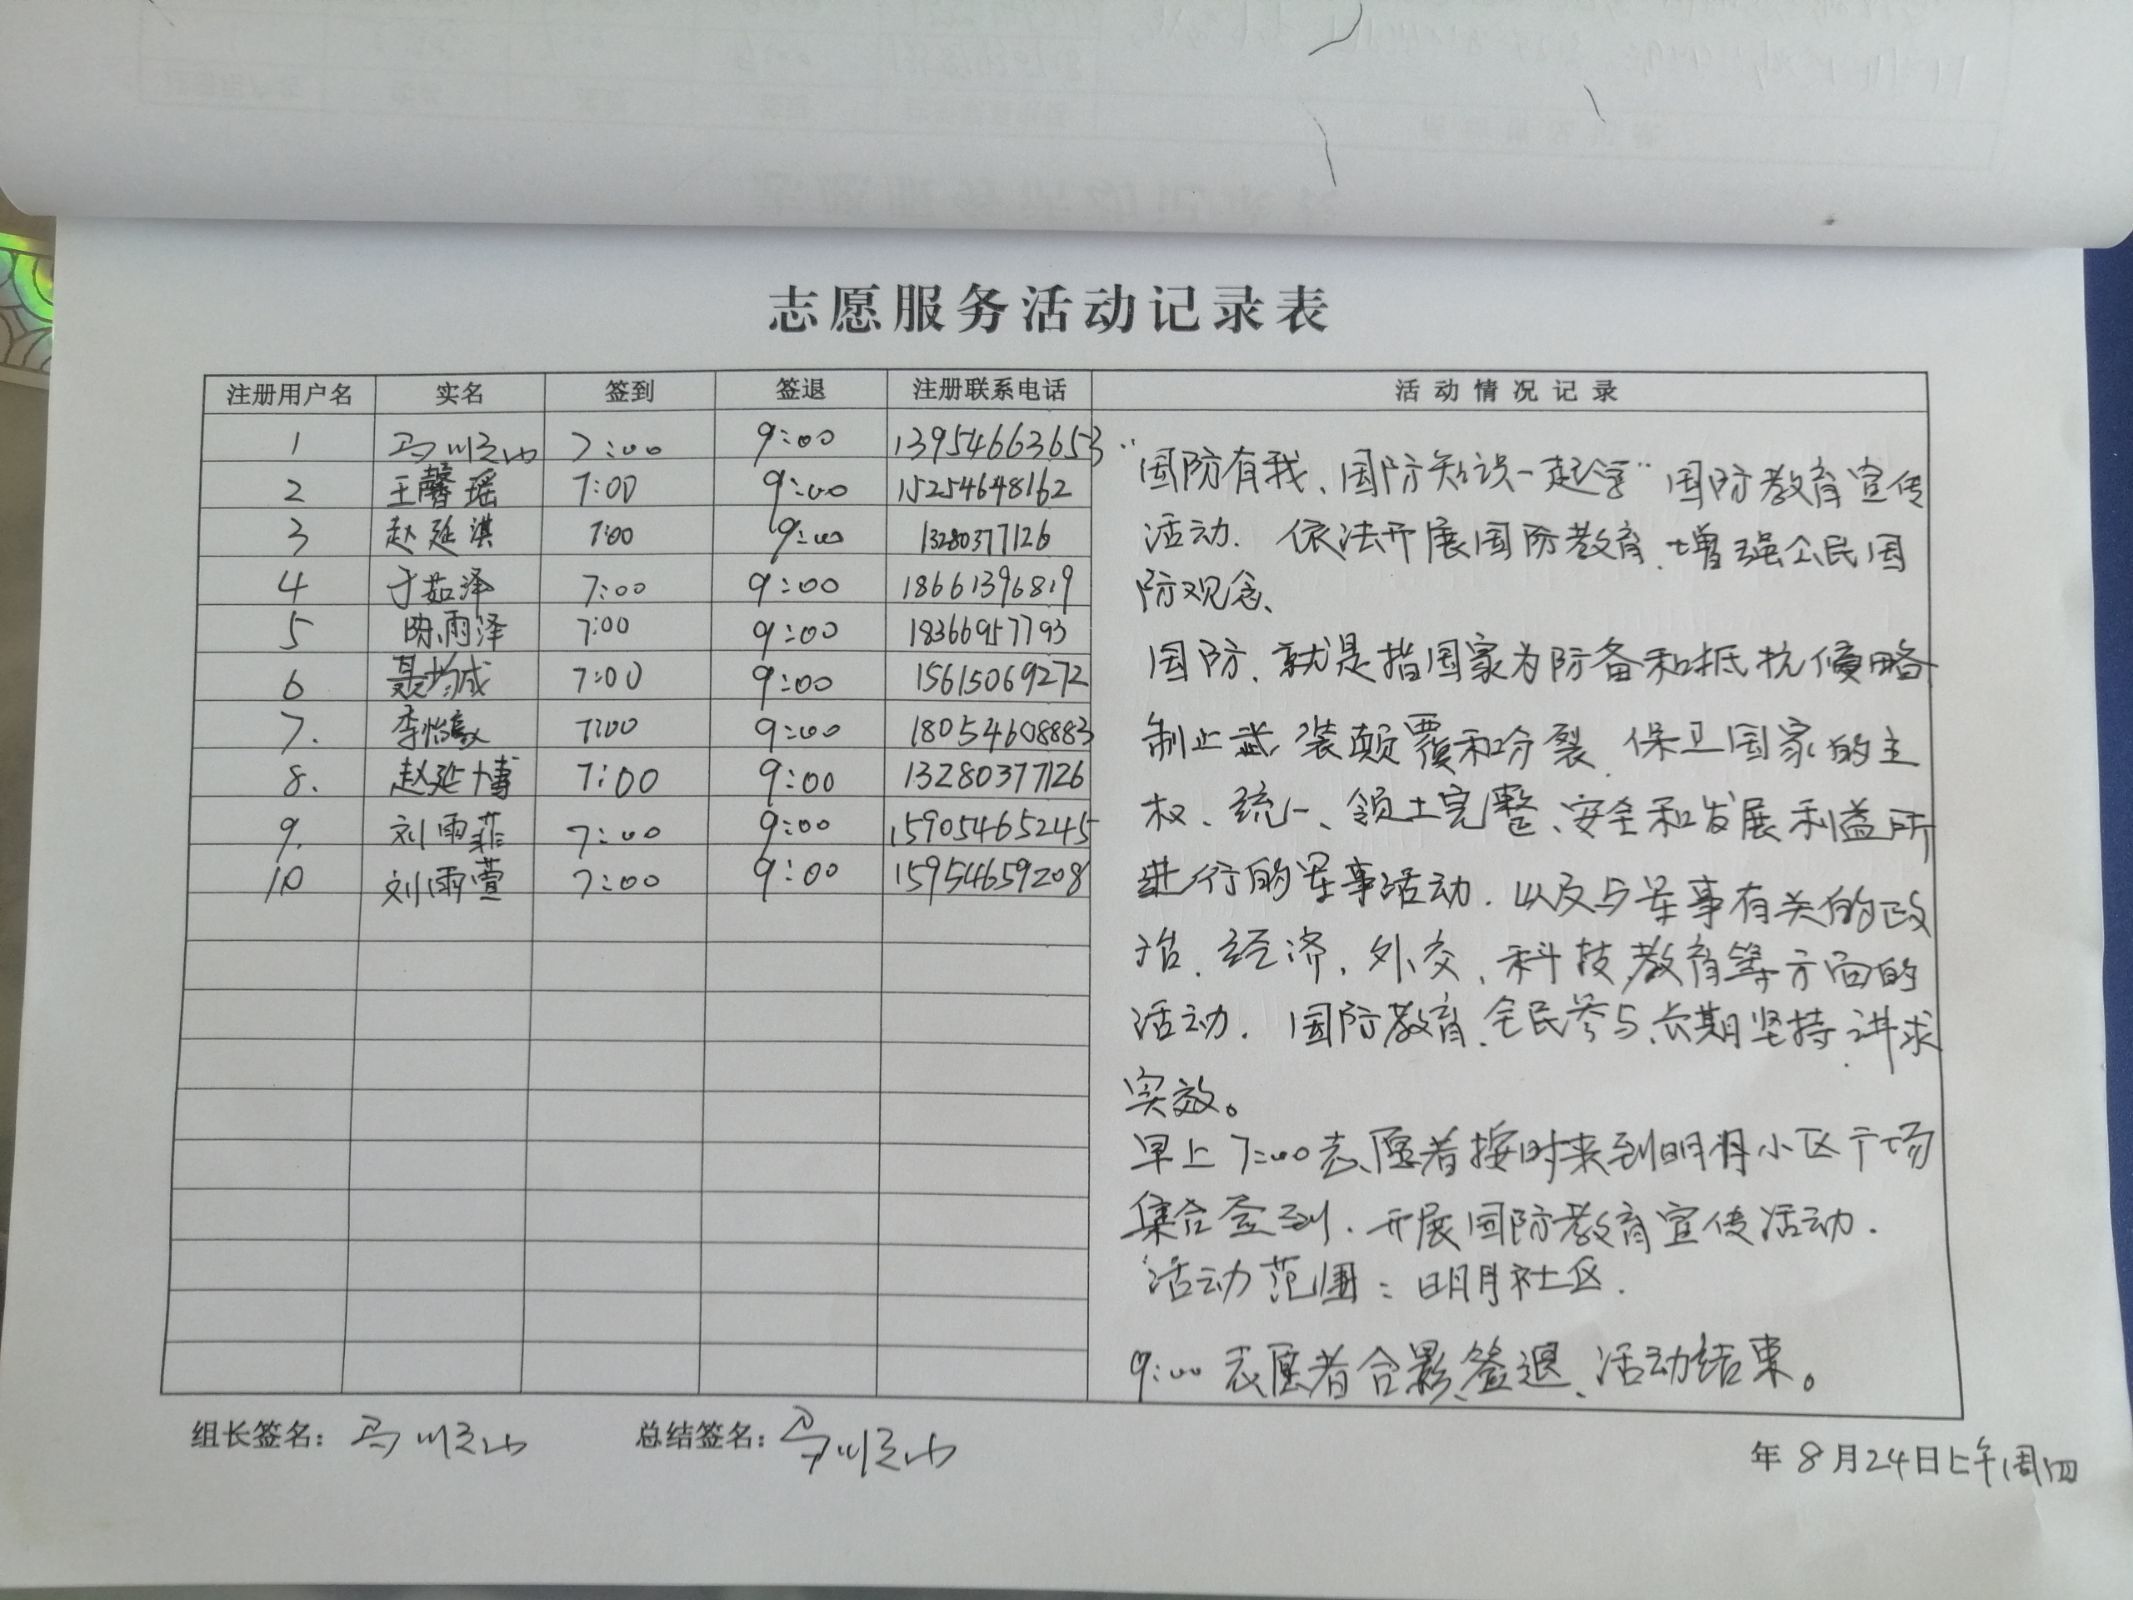 志愿服务活动记录表
注册用户名 实名 签到 签退 注册联系电话 活动情况记录
1 7:00 9:00 13954663653
2 王馨瑶 7:00 9:00 15254648162
3 赵延淇 7:00 9:00 13280377126
4 于茹泽 7:00 9:00 18661396819
5 陈雨泽 7:00 9:00 18366957793
6 聂均成 7:00 9:00 15615069272
7. 李怡 7:00 9:00 18054608883
8. 赵延博 7:00 9:00 13280377126
9. 刘雨菲 7:00 9:00 15905465245
10 刘雨萱 7:00 9:00 15954659208
“国防有我、国防知识一起学”国防教育宣传
活动. 依法开展国防教育、增强公民国
防观念、
国防、就是指国家为防备和抵抗侵略
制止武装颠覆和分裂、保卫国家的主
权、统一、领土完整、安全和发展利益所
进行的军事活动. 以及与军事有关的政
治、经济、外交、科技、教育等方面的
活动. 国防教育、全民参与、长期坚持、讲求
实效。
早上7:00志愿者按时来到明月小区广场
集合签到. 开展国防教育宣传活动.
活动范围:明月社区.
9:00志愿者合影、签退、活动结束。
组长签名: 总结签名:
年8月24日上午周四